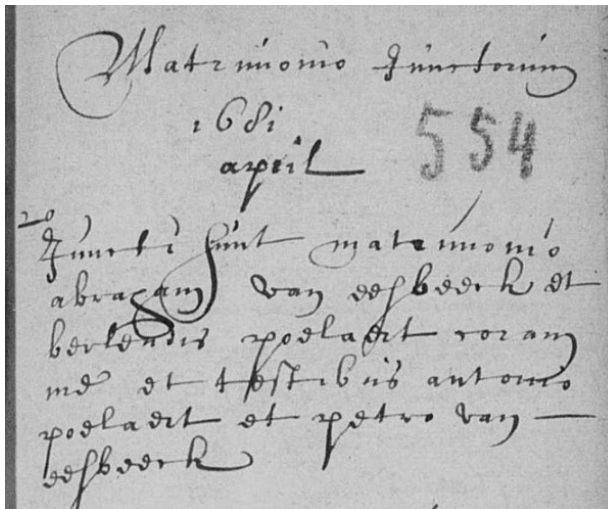 Matrimonio Junctorum
1681
554
april
20
Juncti sunt matrimonio
abraham van eesbeeck et
berlendis poelaert coram
me et testibus antonio
poelaert et petro van
eesbeeck